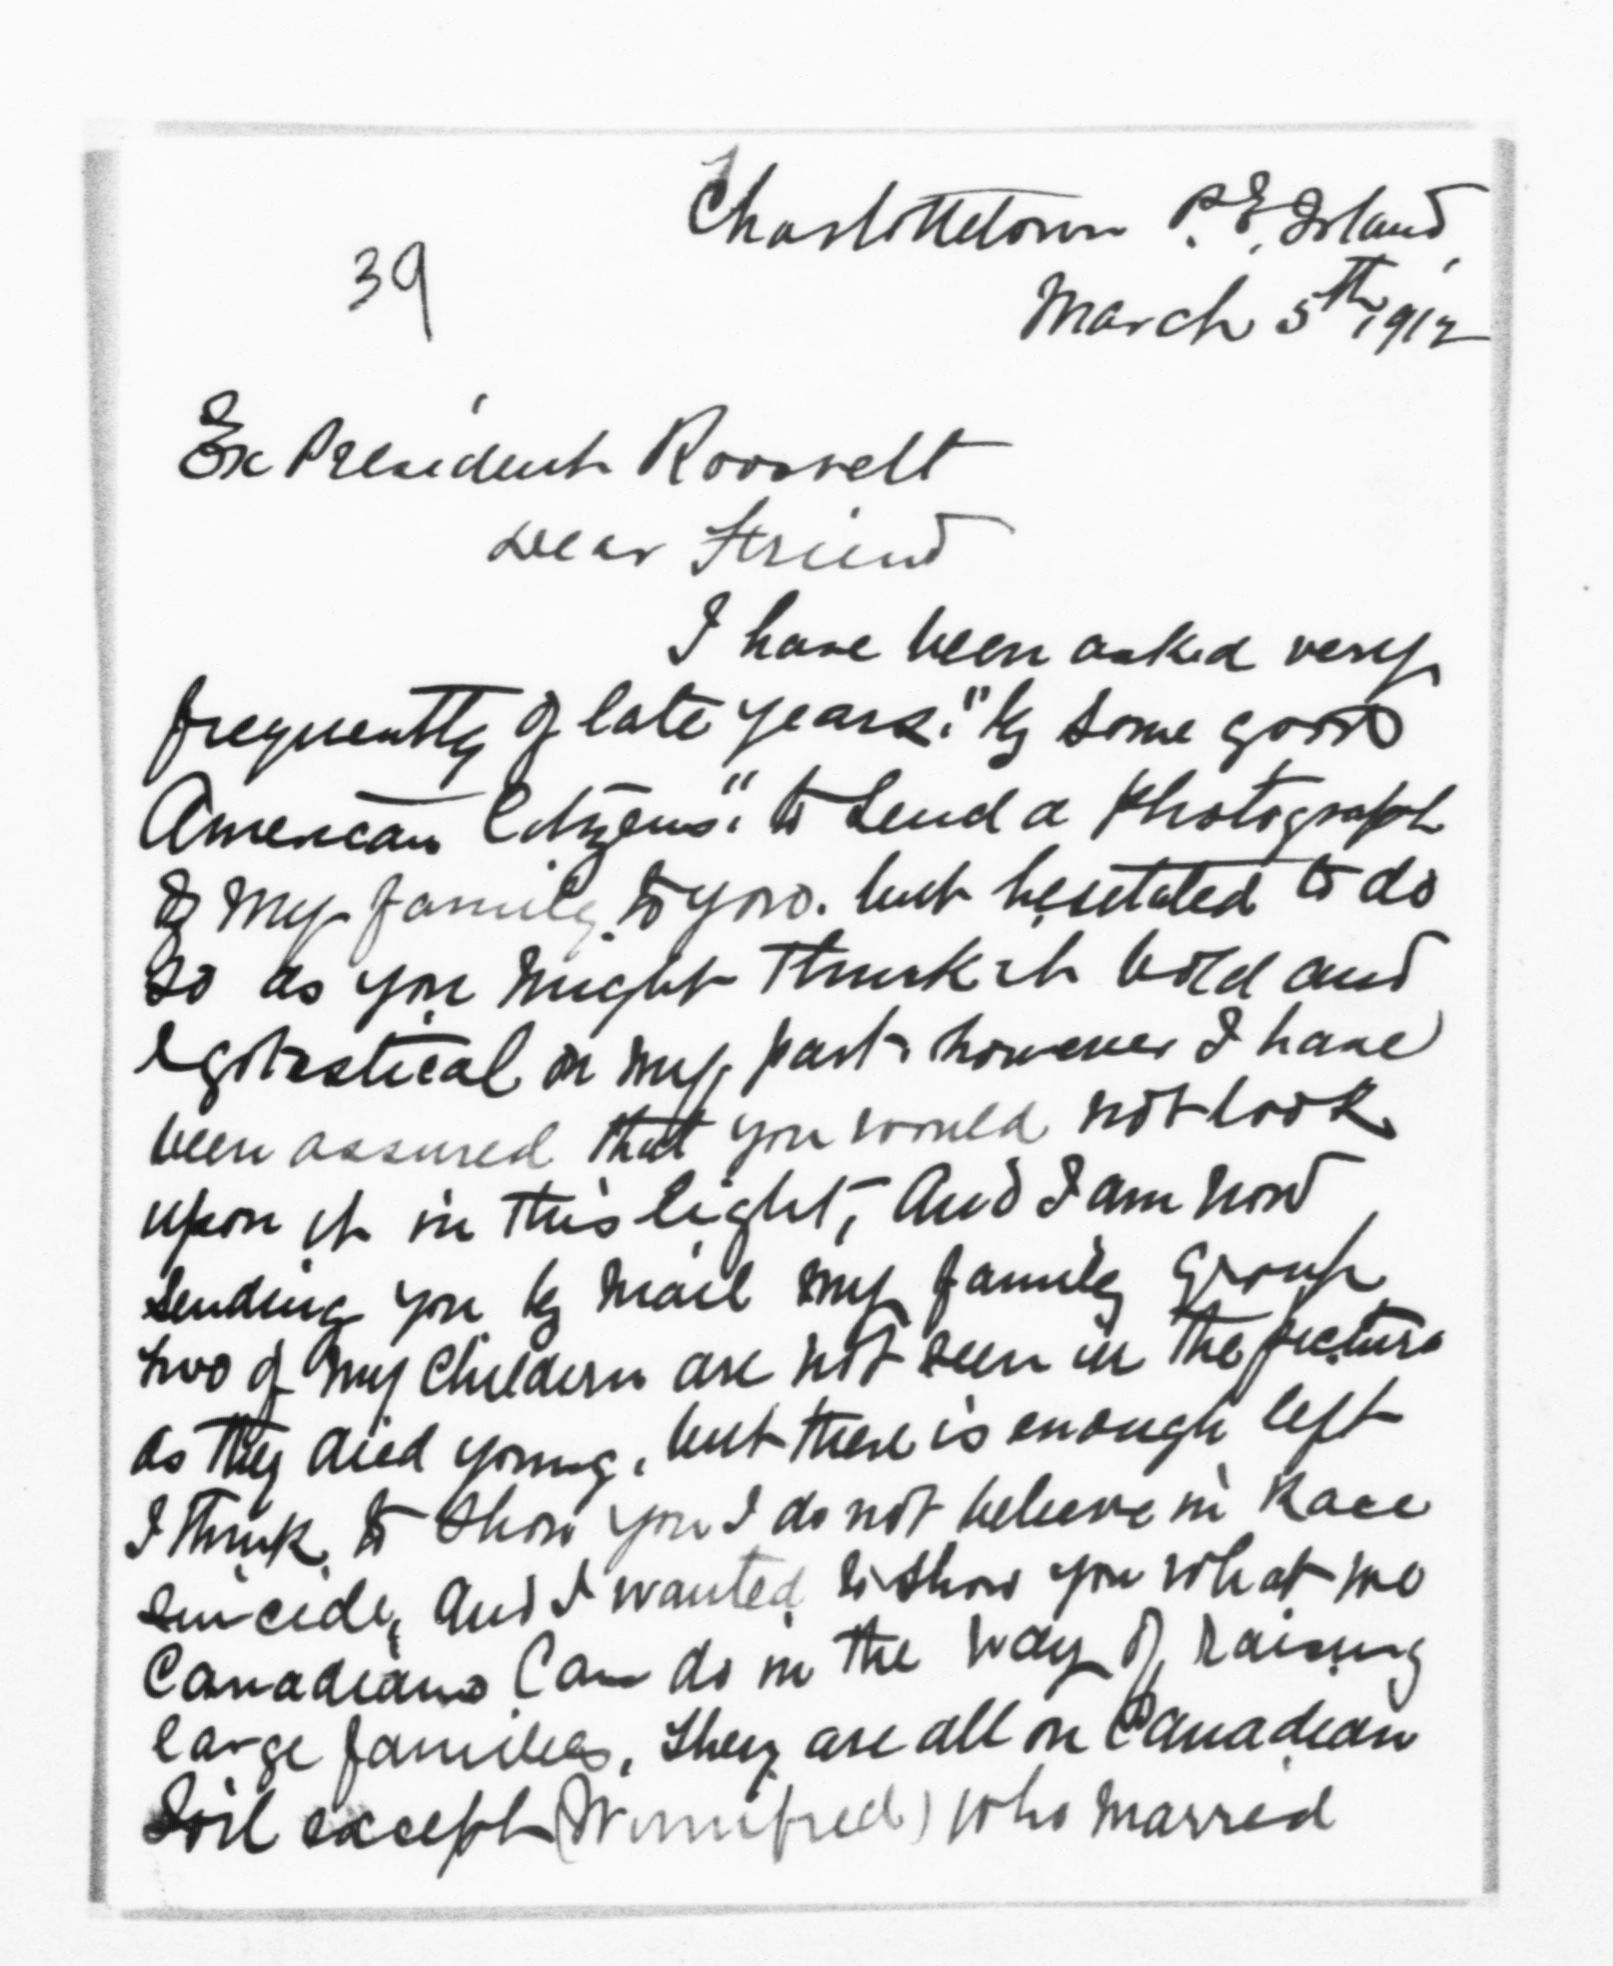 Charlottetown P.E. Island,
39
March 5th, 1912
Ex President Roosevelt
Dear Friend
I have been asked very
frequently of late years. "by some good
American Citizens". to send a Photograph
of my family to you. but hesitated to do
so as you might think it bold and
egotestical on my part. however I have
been assured that you would not look
upon it in this light, And I am now
sending you by mail my family Group
two of my Childern are not seen in the picture
as they died young, but there is enough left
I think to show you I do not believe in Race
suicide, And I wanted to show you what we
Canadians Can do in the way of raising
large families, they are all on Canadian
Soil except (Winnifred) who married